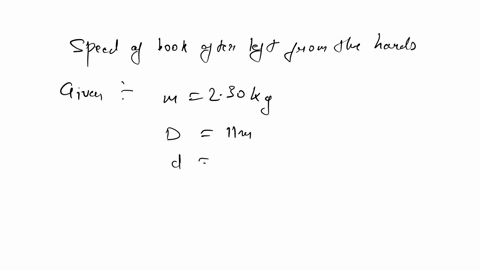 Speed of book after left from the hands
Given ÷ m = 2.30 kg
D = 11m
d =